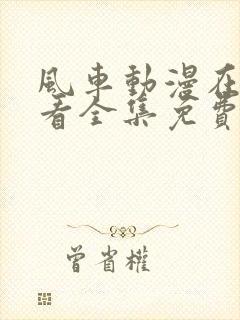 風車動漫在
看全集免費
曾省權